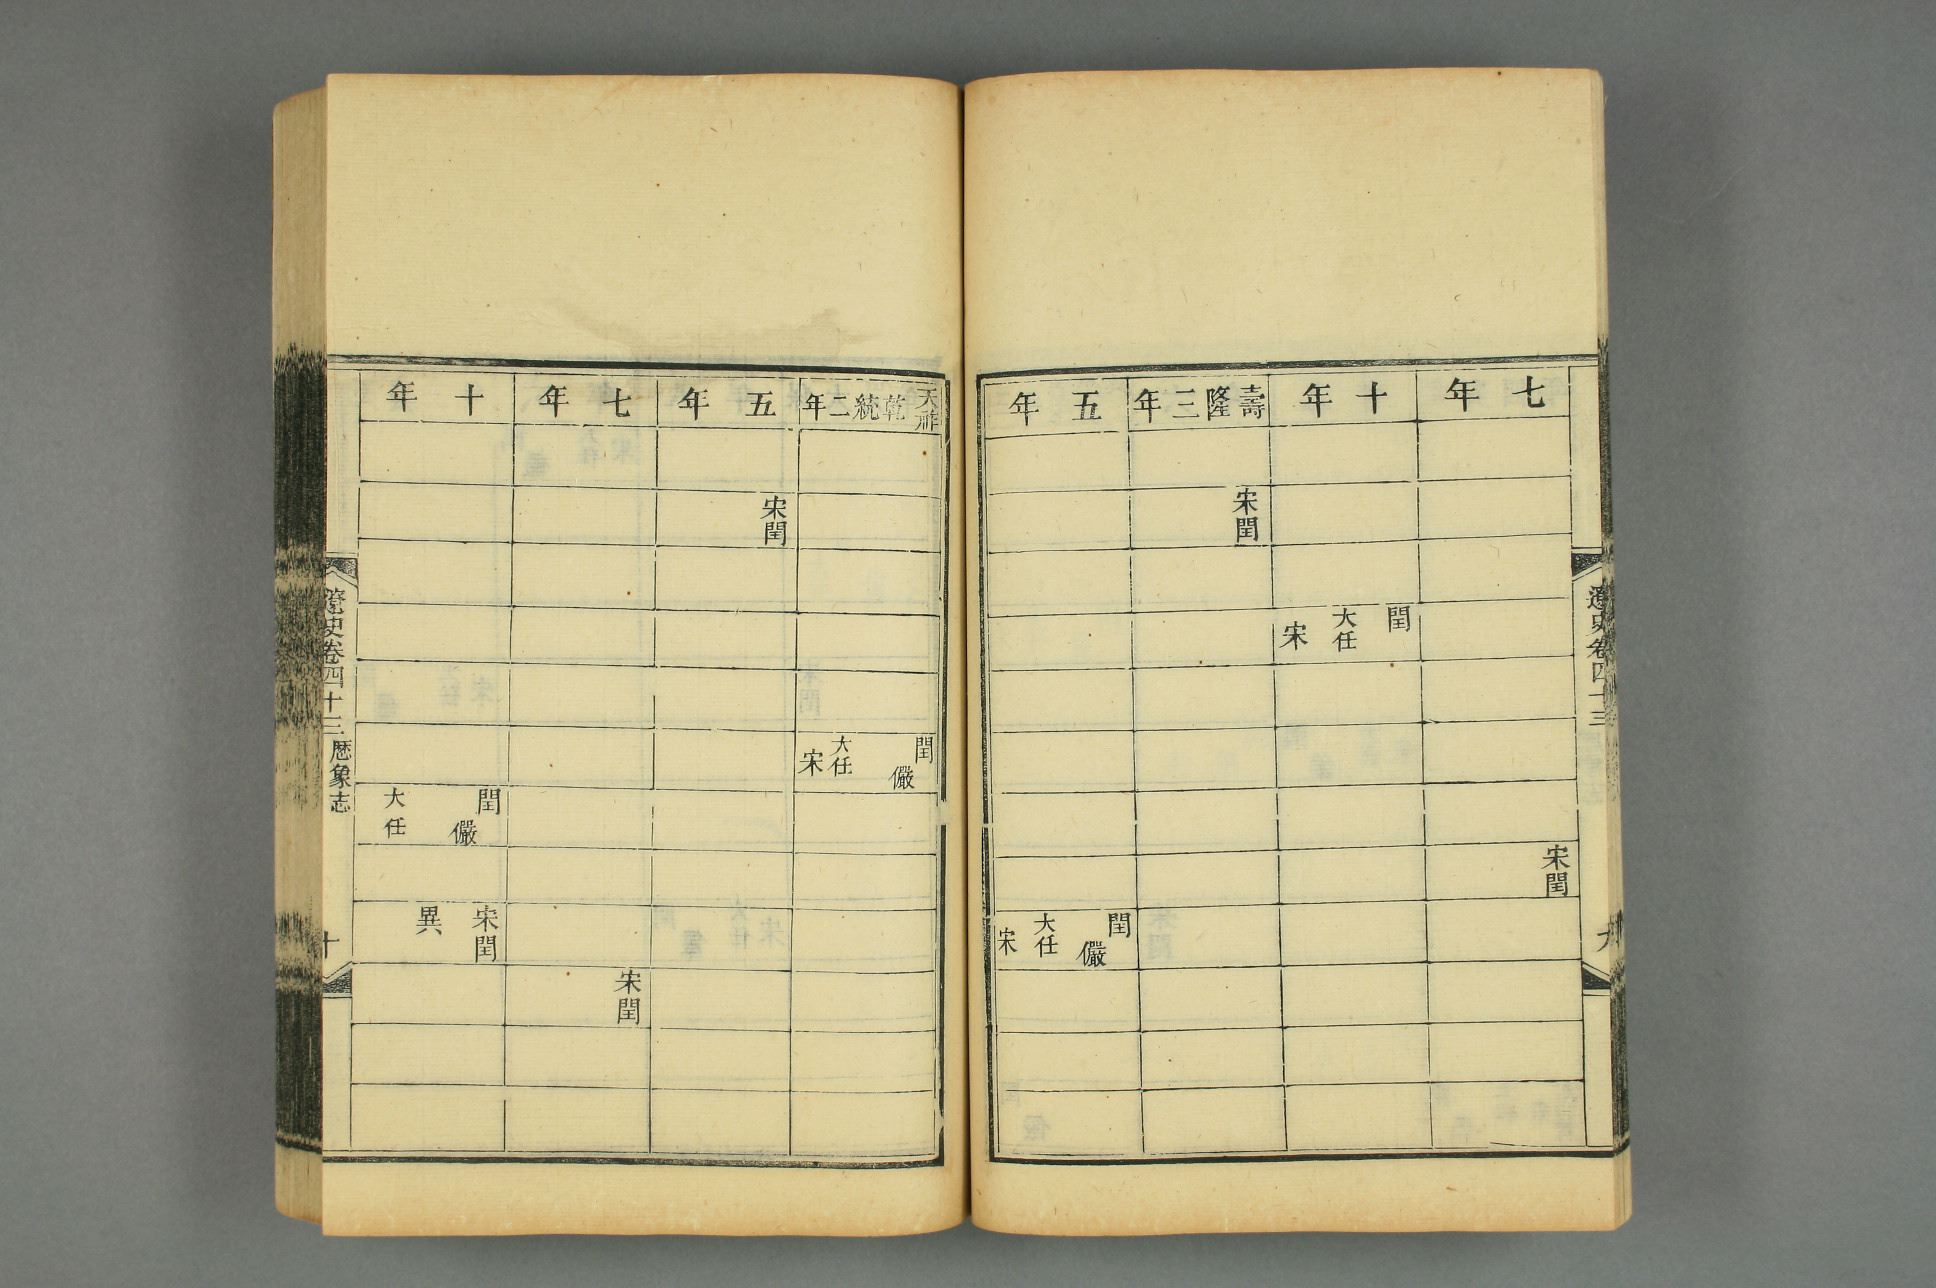 遼史卷四十三
九
七年
宋閏
十年
閏
大任
宋
壽隆三年
宋閏
五年
閏
儼
大任
宋
天祚
乾統二年
閏
儼
大任
宋
五年
宋閏
七年
宋閏
十年
閏
儼
大任
宋閏
異
遼史卷四十三
歷象志
十